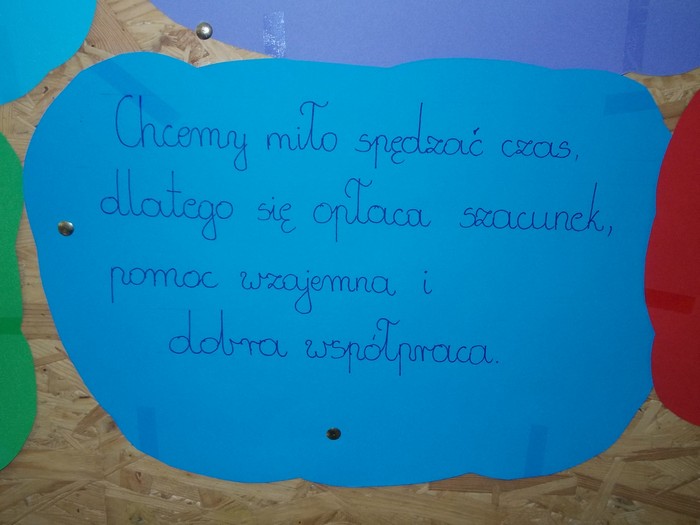 Chcemy miło spędzać czas,
dlatego się opłaca szacunek,
pomoc wzajemna i
dobra współpraca.